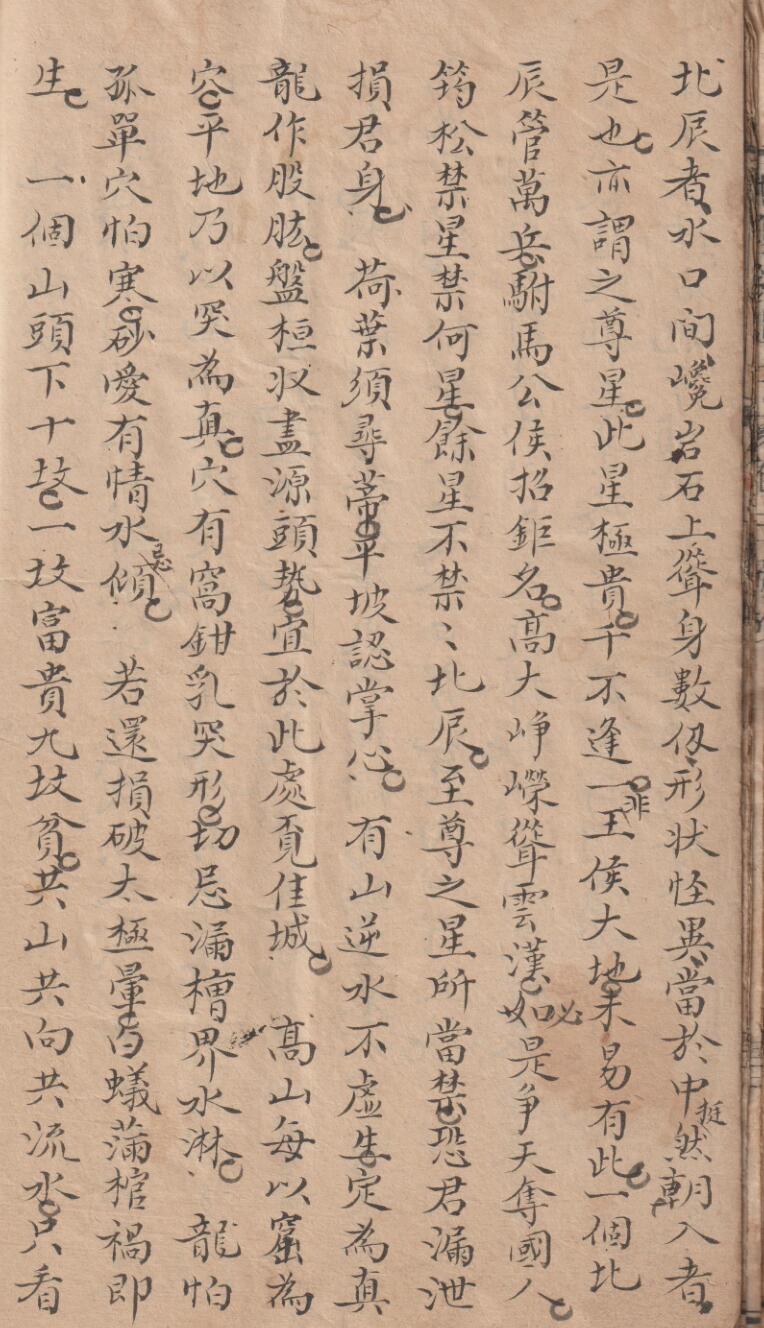 北辰者水口間巉岩石上聳身數仭形状怪異當於中挺然朝入者
是也亦謂之尊星此星極貴千不逢一非王侯大地未易有此一個北
辰管萬兵駙馬公侯招鉅名高大崢嶸聳雲漢如必是争天奪國人
筠松禁星禁何星餘星不禁〻北辰至尊之星所當禁恐君漏泄
損君身 荷葉須尋蒂平坡認掌心 有山逆水不虛生定為真
龍作股肱盤桓収盡源頭勢宜於此處覓佳城 高山每以窩為
容平地乃以突為真穴有窩鉗乳突形切忌漏槽界水淋 龍怕
孤單穴怕寒砂愛有情水忌傾 若還損破太極暈白蟻蒲棺禍即
生 一個山頭下十坟一坟富貴九坟貧共山共向共流水只看